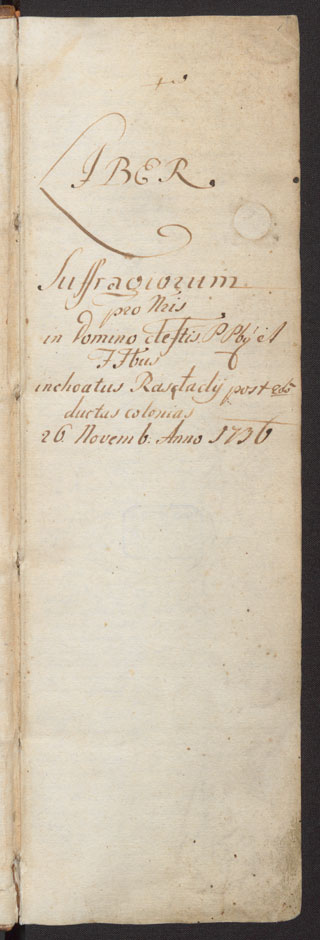 LIBER.
Suffragiorum
pro Nris
in Domino deftis PPbq̃ et
FFbus
inchoatus Rastadij post eo
ductas colonias
26. Novemb. Anno 1736